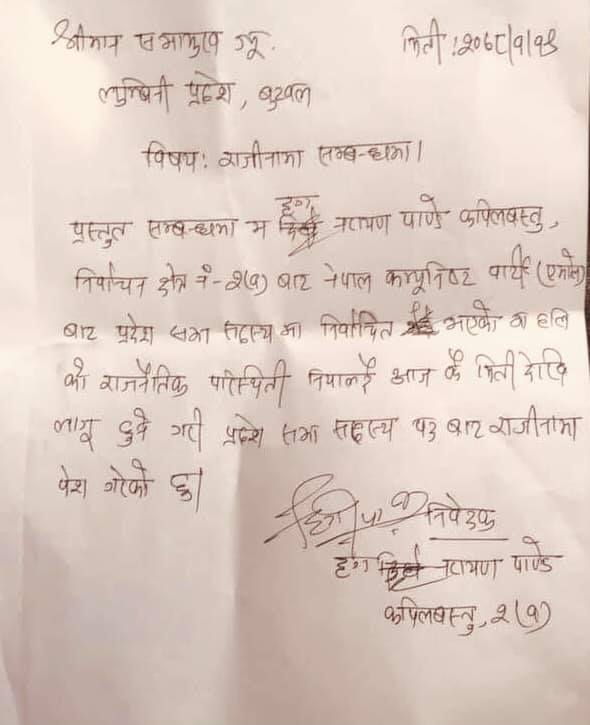 श्रीमान सभामुख ज्यू.
मिती : २०७८/१/१९
लुम्बिनी प्रदेश, बुटवल
विषय: राजीनामा सम्बन्धमा।
प्रस्तुत सम्बन्धमा म दृग नारायण पाण्डे कपिलबस्तु,
निर्वाचन क्षेत्र नं-२(१) बाट नेपाल कम्युनिष्ट पार्टी (एमाले)
बाट प्रदेश सभा सदस्य मा निर्वाचित भएको मा हाल
को राजनैतिक परिस्थिती नियालदै आज कै मिती देखि
लागू हुने गरी प्रदेश सभा सदस्य पद बाट राजीनामा
पेश गरेको छु।
निवेदक
दृग नारायण पाण्डे
कपिलबस्तु, २(१)